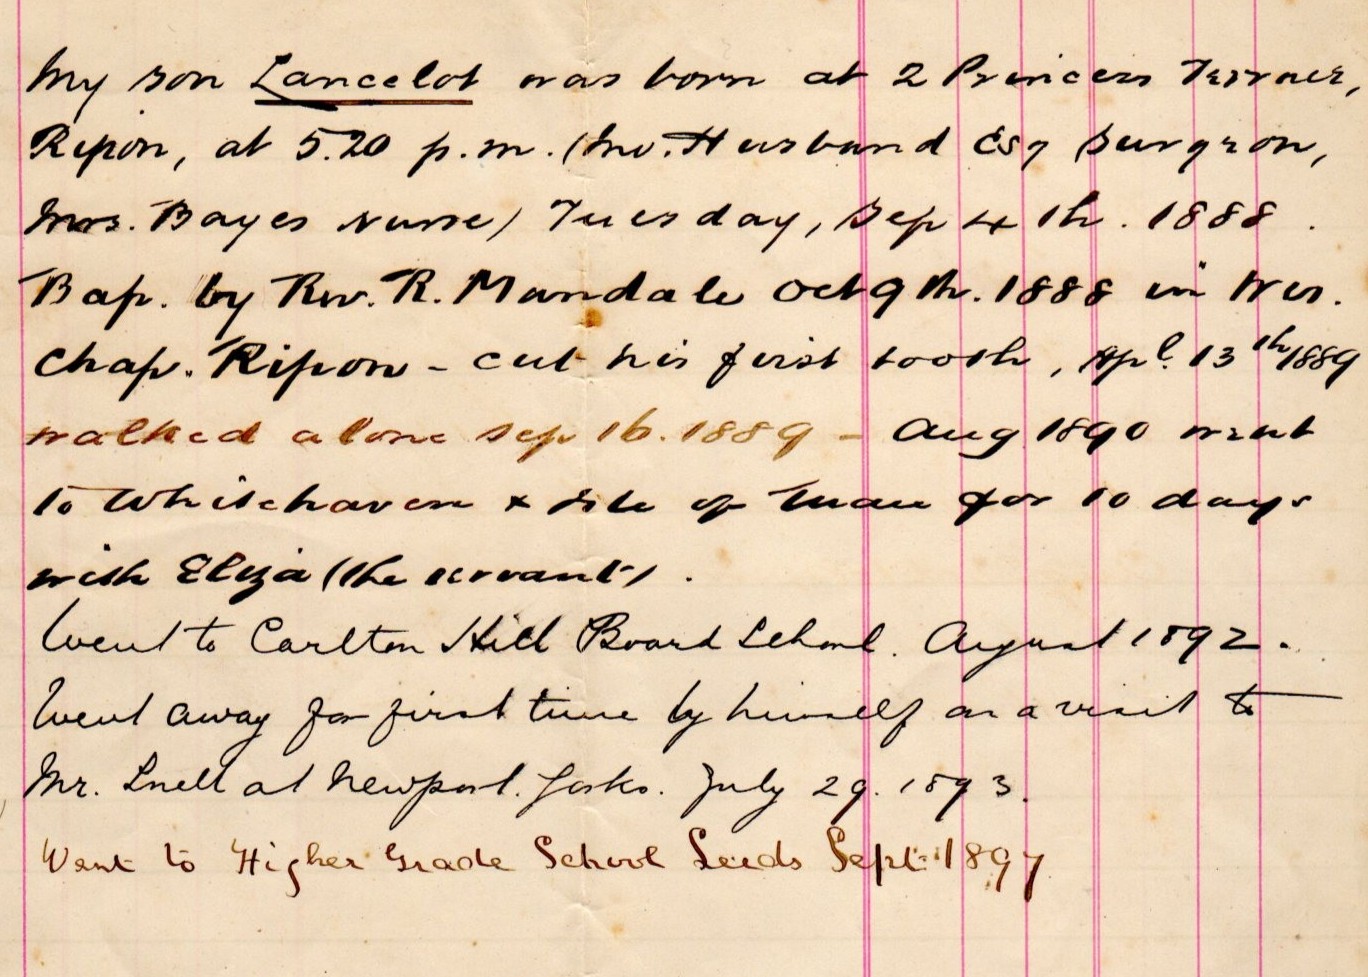 My son Lancelot was born at 2 Princess Terrace,
Ripon, at 5.20 p.m. (Mr. Husband Esq Surgeon,
Mrs. Bayes Nurse) Tuesday, Sep 4th. 1888.
Bap. by Rev. R. Mandale Oct 9th. 1888 in Wes.
Chap. Ripon - cut his first tooth, Apl. 13th 1889
walked alone Sep 16. 1889 - Aug 1890 went
to Whitehaven & Isle of Man for 10 days
with Eliza (the servant).
Went to Carlton Hill Board School. August 1892.
Went away for first time by himself on a visit to
Mr. Snell at Newport. Yorks. July 29. 1893.
Went to Higher Grade School Leeds Sept. 1897